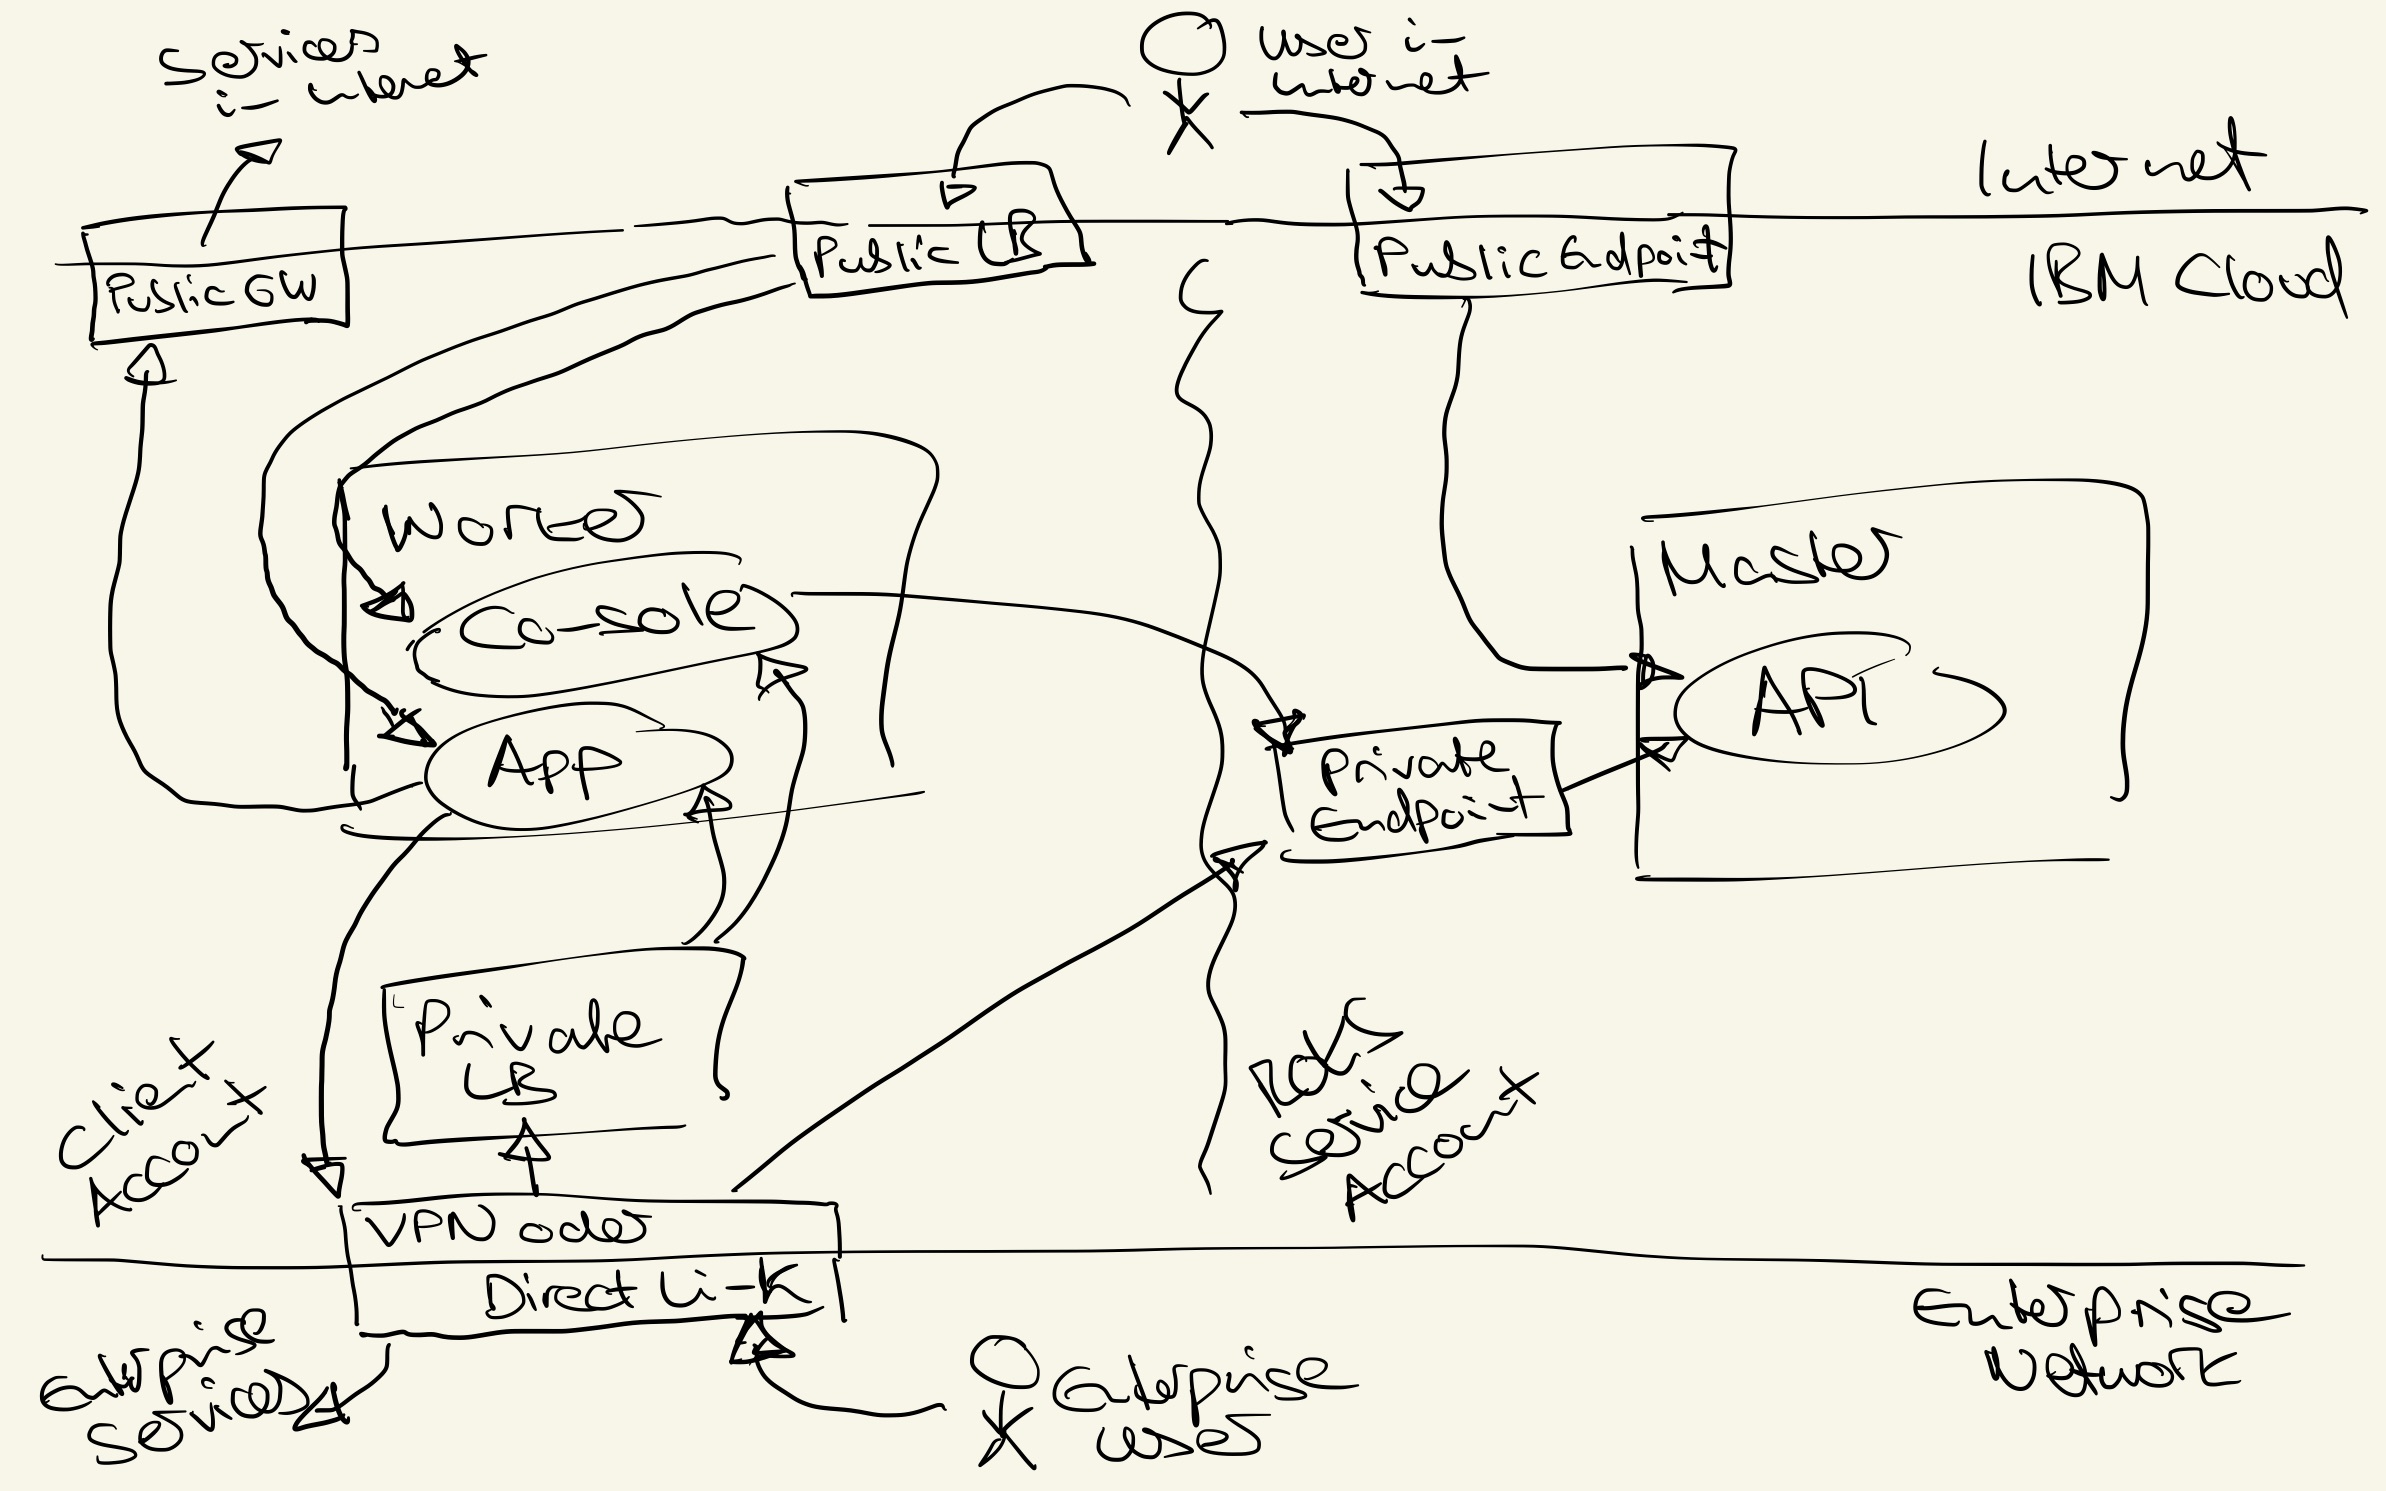 Services
in internet
User in
internet
Internet
Public GW
Public LB
Public Endpoint
IBM Cloud
Worker
Console
App
Master
API
Private
Endpoint
Private
LB
Client
Account
ROKS
Service
Account
VPN oder
Direct Link
Enterprise
Services
Enterprise
User
Enterprise
Network